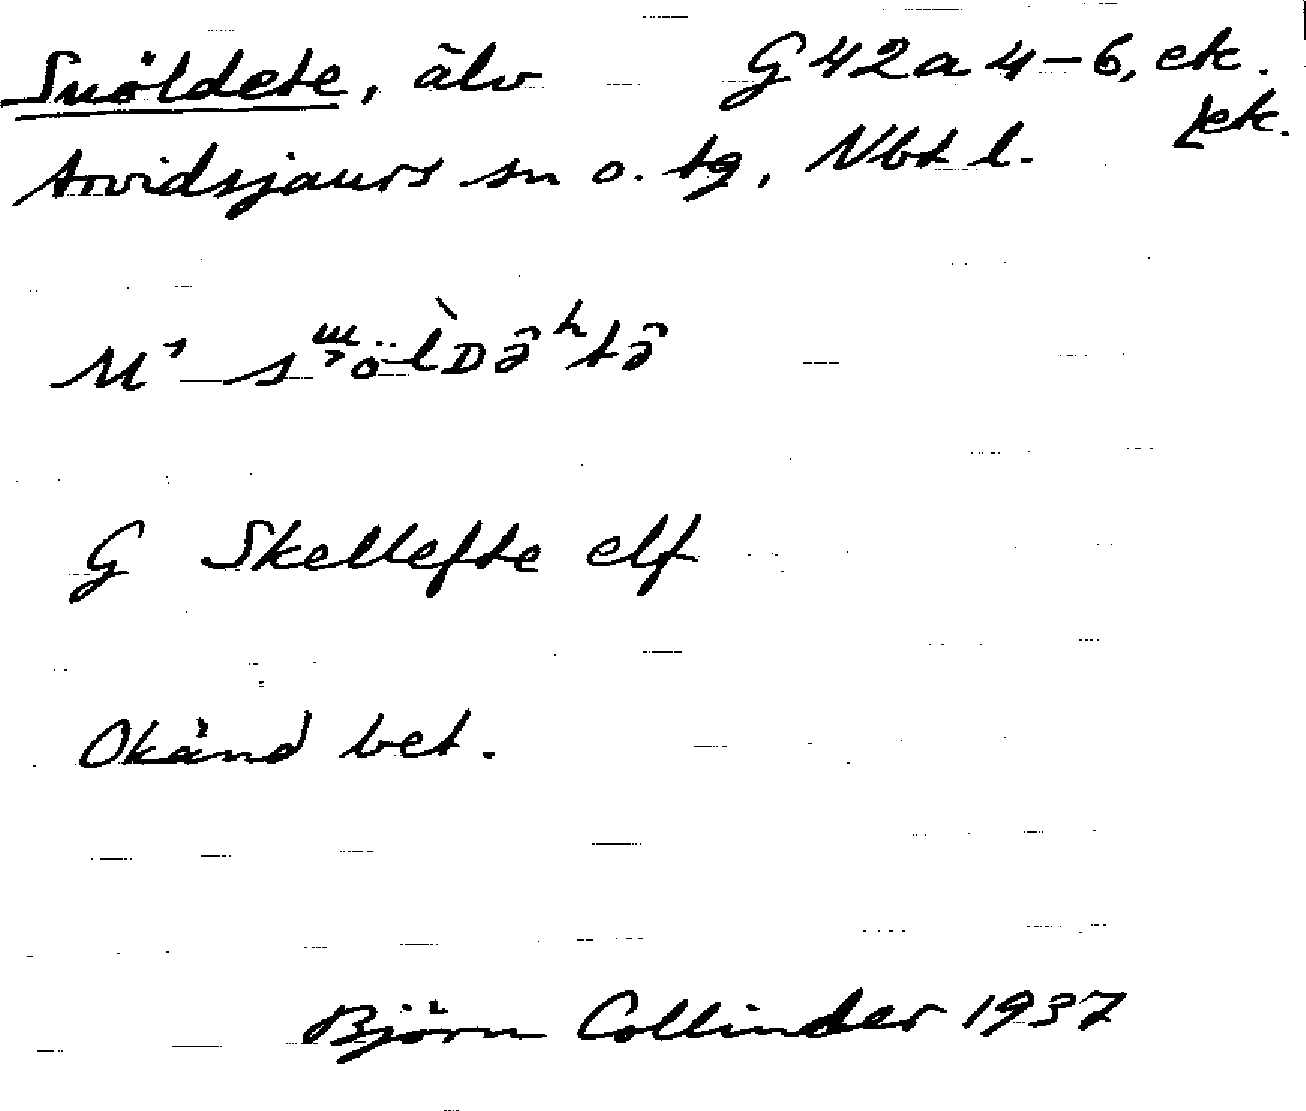 Suöldete, älv G 42 a 4-6, ek.
[ek.
Arvidsjaurs sn o. tg, Nbt l.
G Skellefte elf
Okänd bet.
Björn Collinder 1937